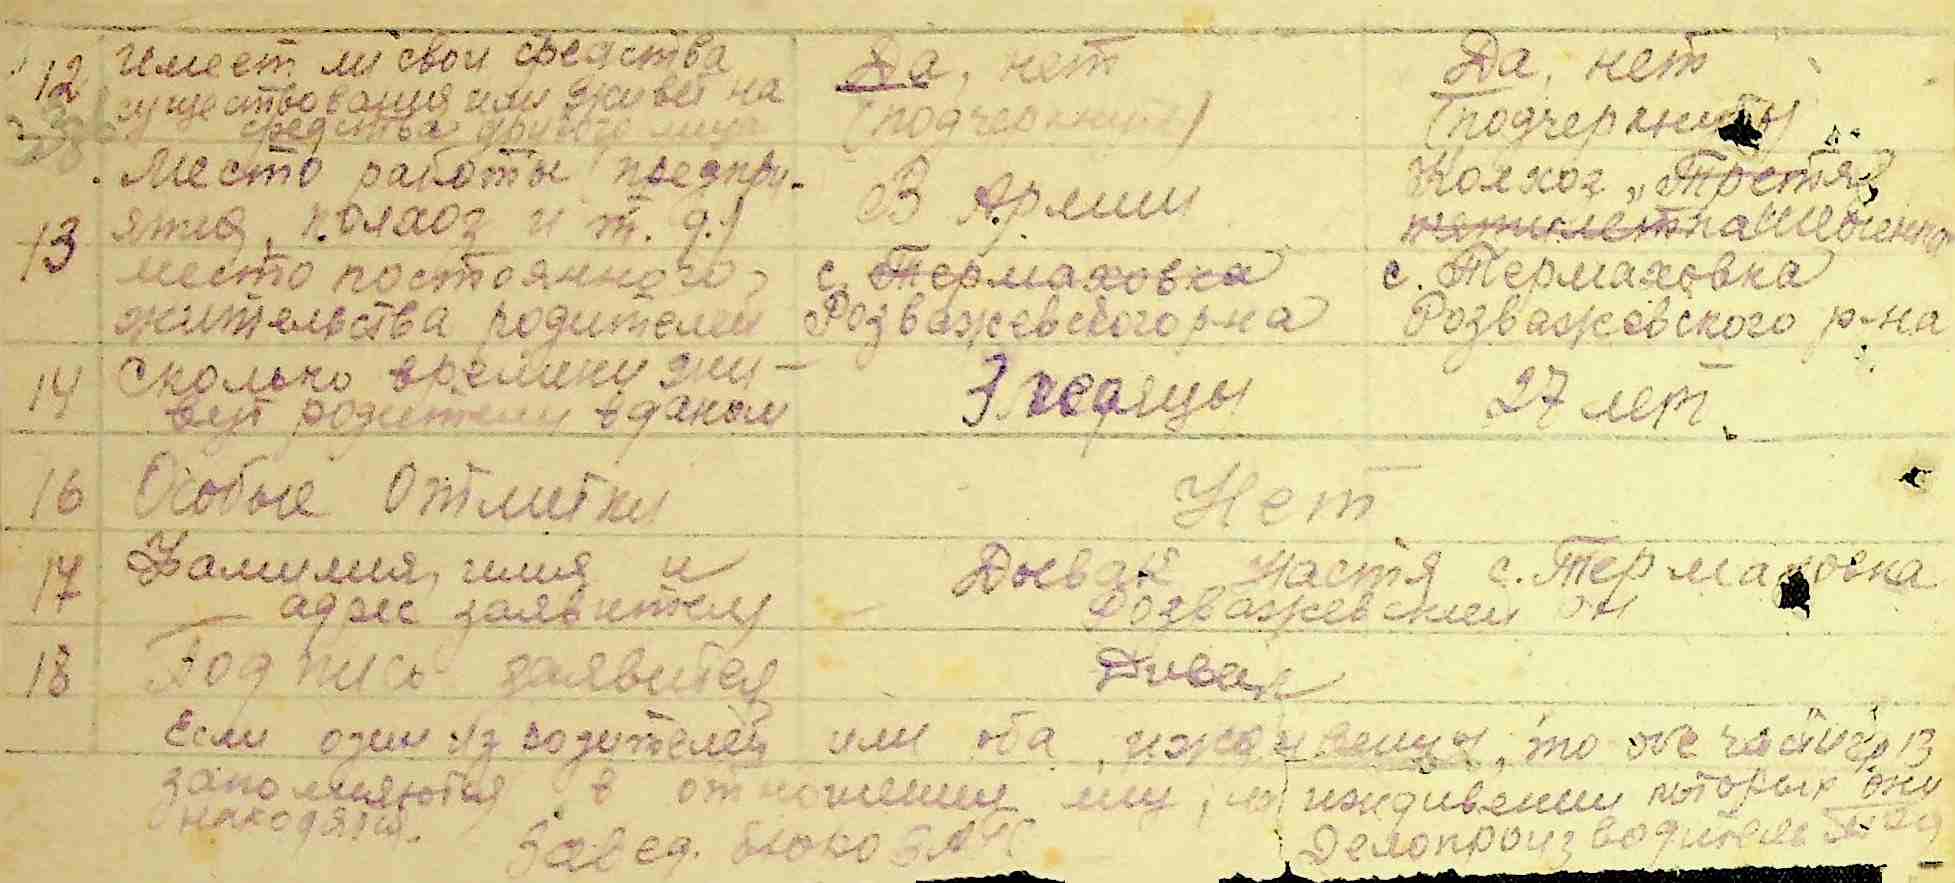 12 Имеет ли свои средства Да, нет Да, нет
существования или живет на (подчеркнуть) (подчеркнуть)
средства другого лица
Место работы (предпри-
13 ятия, колхоз и т. д.) В Армии Колхоз „Третья
Шевченко
место постоянного с. Термаховка с. Термаховка
жительства родителей Розважевского р-на Розважевского р-на
14 Сколько времени жи- 3 месяцы 27 лет
вут родители в даном
16 Особые отметки Нет
17 Фамилия, имия и Настя с. Термаховка
адрес заявителя Розважевский
18 Подпись заявителя
Если один из родителей или оба, иждивенцы, то обе части гр 13
заполняются в отношении лиц, на иждивении которых они
находятся.
Завед. бюро ЗАГС Делопроизводитель